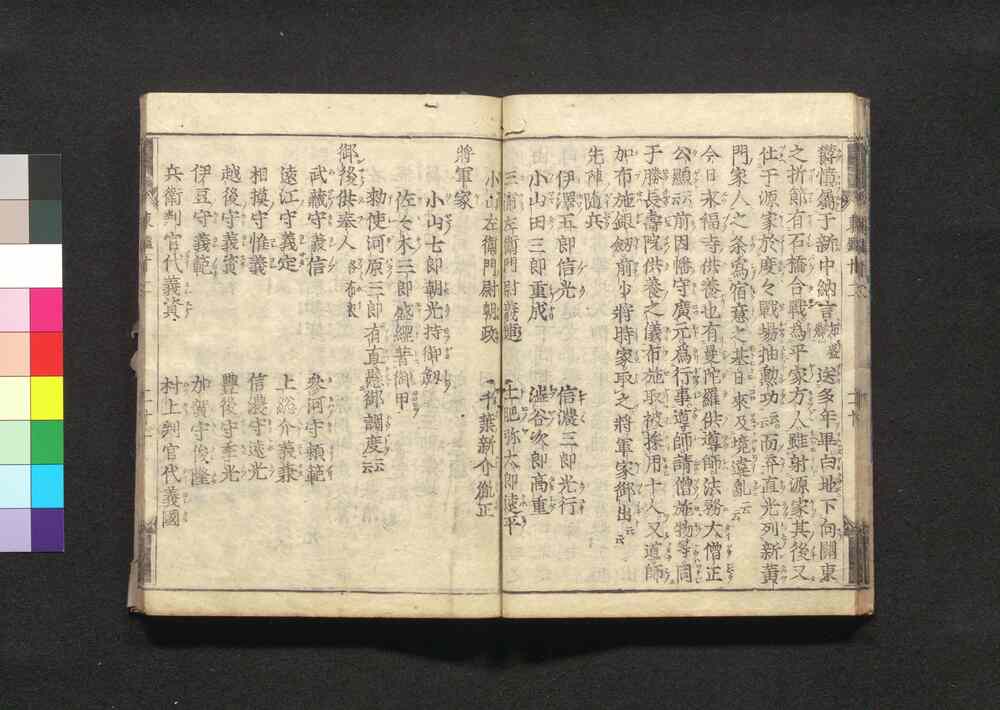 欝憤猶于新中納言知盛卿送多年畢白地下向關東
之折節有石橋合戰為平家方人雖射源家其後又
仕于源家於度々戰場抽勲功云云而弃直光列新黄
門家人之条為宿意之基日來及境違亂云云
今日永福寺供養也有曼陀羅供導師法務大僧正
公顯云云前因幡守廣元為行事導師請僧施物等同
于勝長壽院供養之儀布施取被採用十人又道師
加布施銀劔前少將時家取之將軍家御出云云
先陣随兵
伊澤五郎信光 信濃三郎光行
小山田三郎重成 澁谷次郎高重
三浦左衛門尉義連 土肥弥太郎遠平
小山左衛門尉朝政 千葉新介胤正
將軍家
小山七郎朝光持御劔
佐々木三郎盛綱着御甲
勅使河原三郎有直懸御調度云云
御後供奉人 各布衣
武藏守義信 参河守頼範
遠江守義定 上総介義兼
相摸守惟義 信濃守遠光
越後守義資 豊後守季光
伊豆守義範 加賀守俊隆
兵衛判官代義資 村上判官代義國